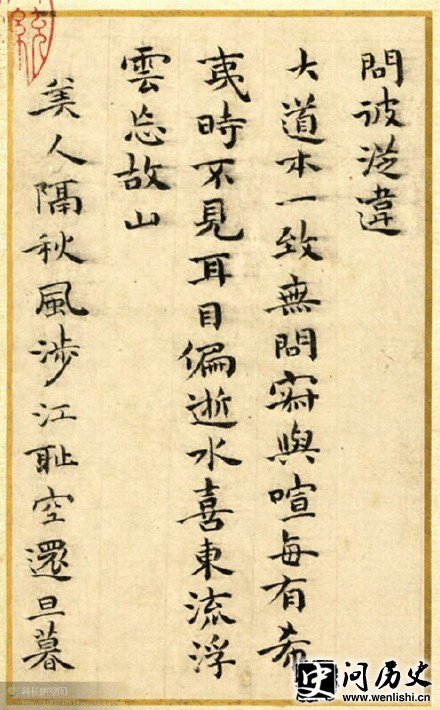 問彼從違
大道本一致無問寂與喧每有希
夷時不見耳目偏逝水喜東流浮
雲忘故山
美人隔秋風涉江恥空還旦暮
问历史
www.wenlishi.cn